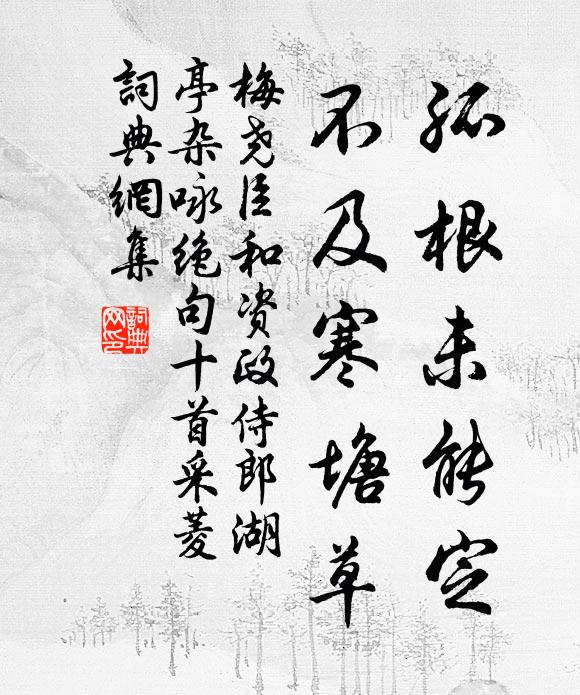 孤根未能定
不及寒塘草
梅尧臣和资政侍郎湖
亭杂咏绝句十首采菱
詞典網集
詞典
网印